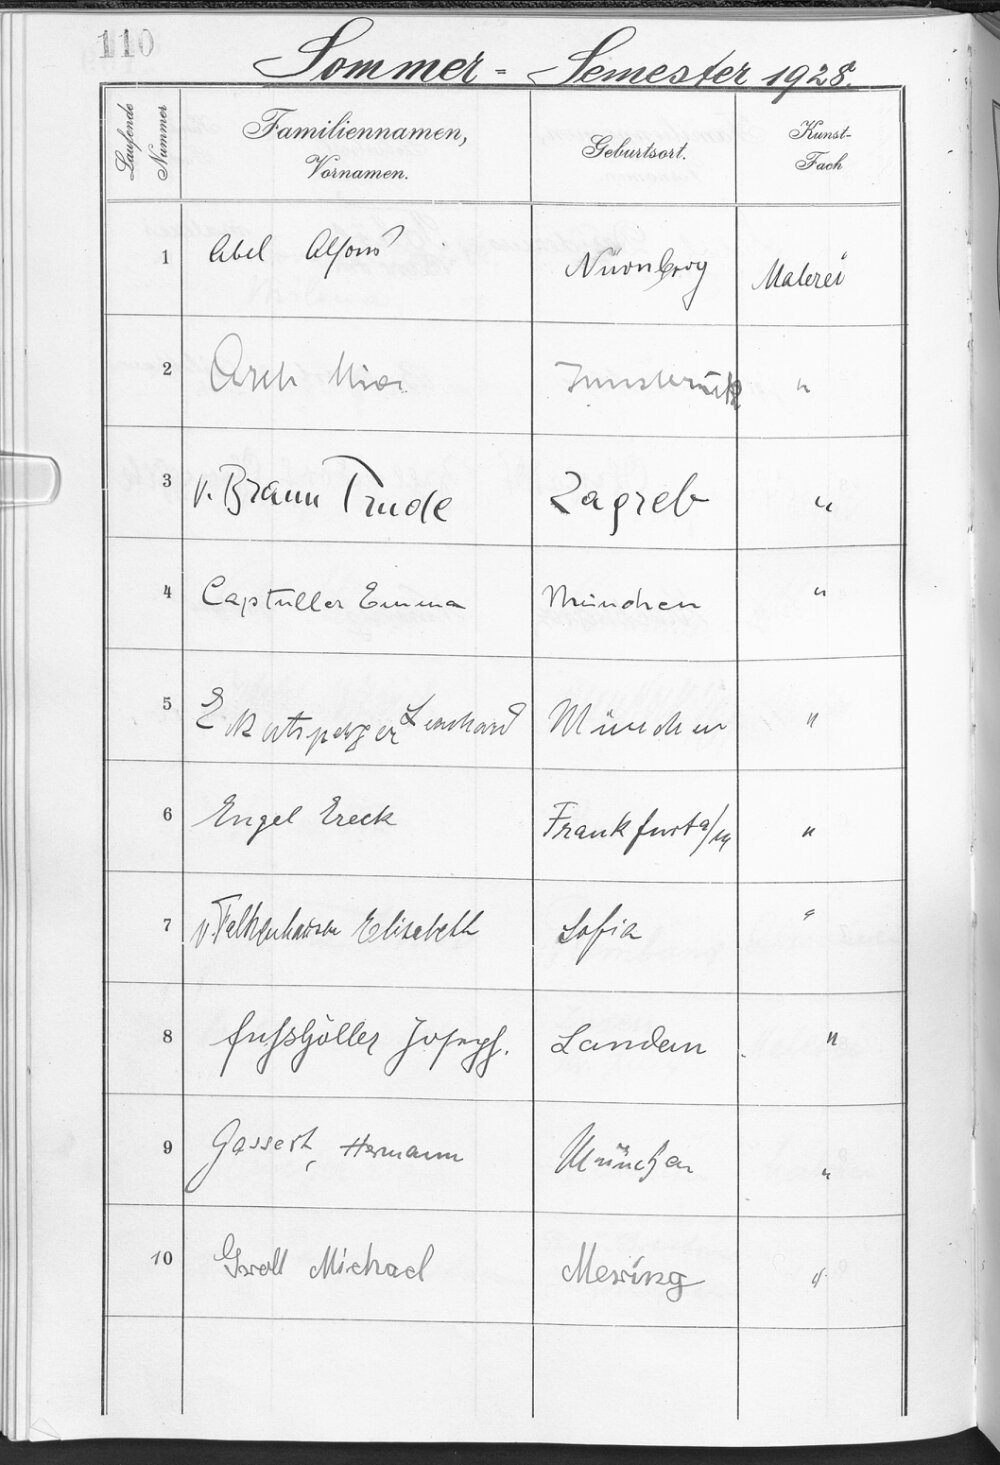 110
Sommer - Semester 1928.
Laufende Nummer
Familiennamen, Vornamen.
Geburtsort.
Kunst-Fach
1 Abel Alfons Nürnberg Malerei
2 Arch Mia Innsbruck "
3 v. Braun Trude Zagreb "
4 Captuller Emma München "
5 Leonhard München "
6 Engel Ereck Frankfurt a/M "
7 v. Falkenhausen Elisabeth Sofia "
8 Fußhöller Joseph. Landau "
9 Gassert, Hermann München "
10 Groll Michael Mering "